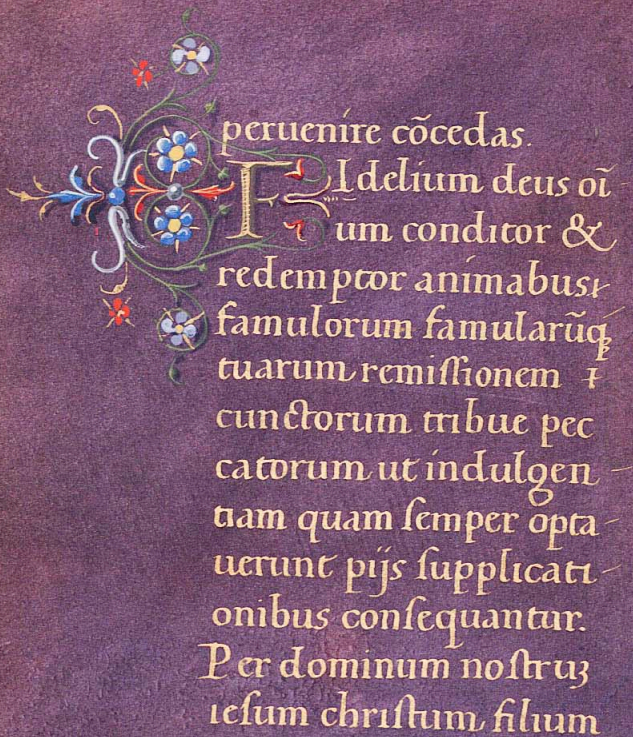 peruenire cõcedas.
FIdelium deus oĩ
um conditor &
redemptor animabus
famulorum famularũq
tuarum remiſſionem
cunctorum tribue pec
catorum ut indulgen
tiam quam ſemper opta-
uerunt pijs ſupplicati-
onibus conſequantur.
Per dominum noſtruȝ
ieſum chriſtum filium